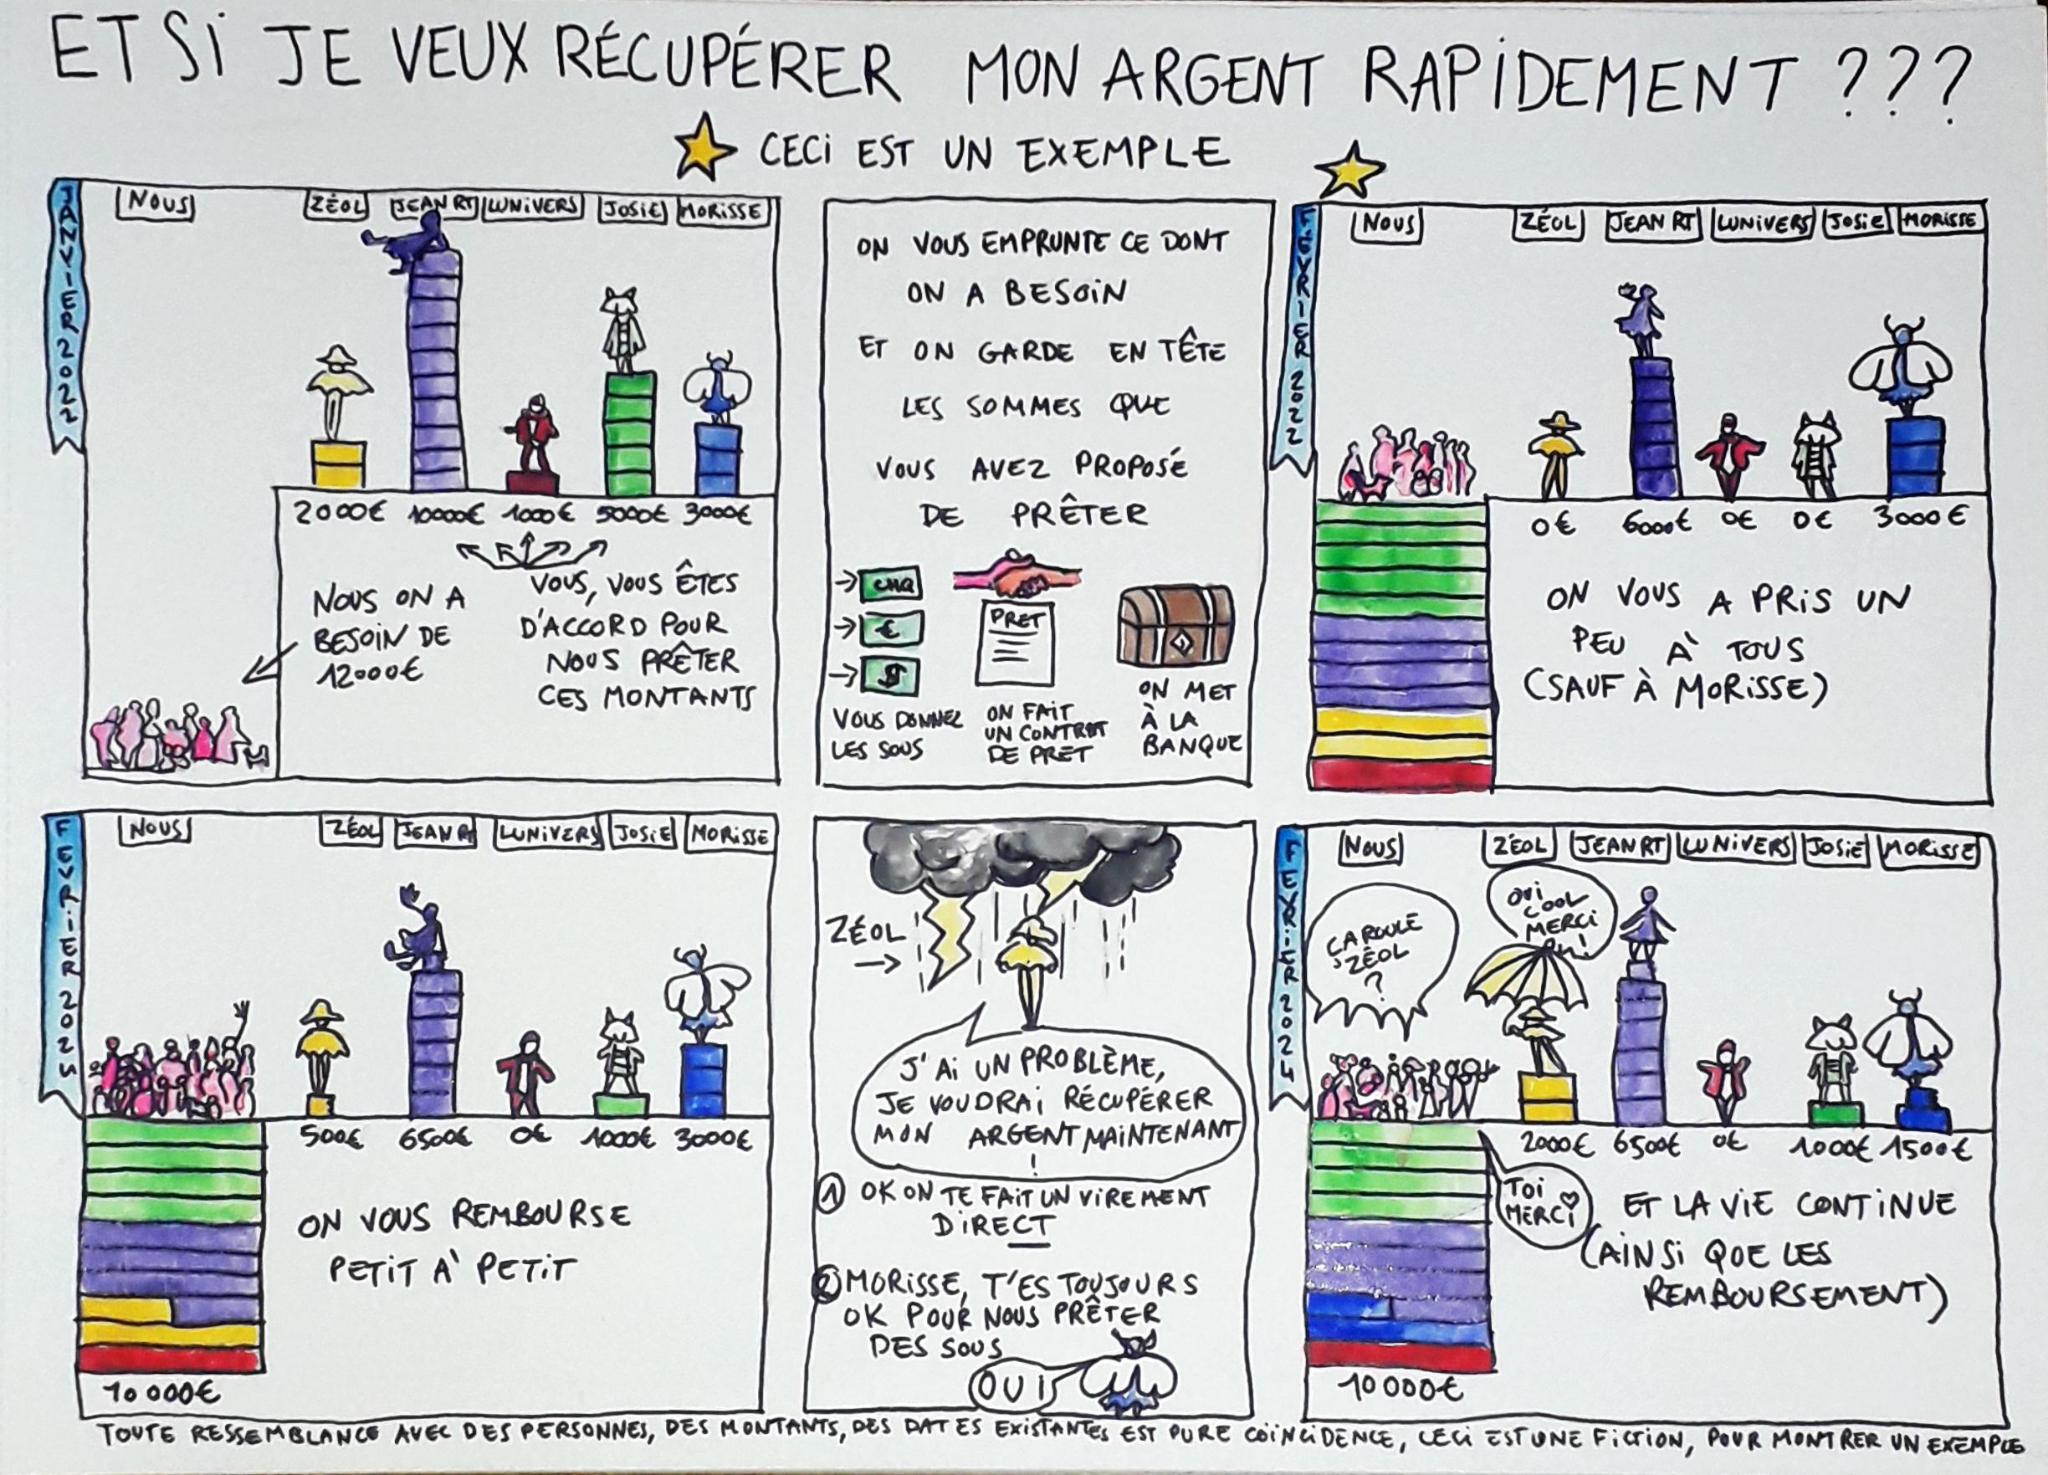 ET SI JE VEUX RÉCUPÉRER MON ARGENT RAPIDEMENT ???
CECI EST UN EXEMPLE
JANVIER 2022
NOUS
ZÉOL
JEAN RT
LUNIVERS
JOSIE
MORISSE
2000€ 10000€ 1000€ 5000€ 3000€
NOUS ON A
BESOIN DE
12000€
VOUS, VOUS ÊTES
D'ACCORD POUR
NOUS PRÊTER
CES MONTANTS
ON VOUS EMPRUNTE CE DONT
ON A BESOIN
ET ON GARDE EN TÊTE
LES SOMMES QUE
VOUS AVEZ PROPOSÉ
DE PRÊTER
CHQ
€
$
VOUS DONNEZ
LES SOUS
PRET
ON FAIT
UN CONTRAT
DE PRET
ON MET
À LA
BANQUE
FEVRIER 2022
NOUS
ZÉOL
JEAN RT
LUNIVERS
JOSIE
MORISSE
0€ 6000€ 0€ 0€ 3000€
ON VOUS A PRIS UN
PEU À TOUS
(SAUF À MORISSE)
FEVRIER 2024
NOUS
ZÉOL
JEAN RT
LUNIVERS
JOSIE
MORISSE
500€ 6500€ 0€ 1000€ 3000€
ON VOUS REMBOURSE
PETIT A' PETIT
10000€
ZÉOL
J'AI UN PROBLÈME,
JE VOUDRAI RÉCUPÉRER
MON ARGENT MAINTENANT
!
1 OK ON TE FAIT UN VIREMENT
DIRECT
2 MORISSE, T'ES TOUJOURS
OK POUR NOUS PRÊTER
DES SOUS
OUI
FEVRIER 2024
NOUS
ZÉOL
JEAN RT
LUNIVERS
JOSIE
MORISSE
CA ROULE
ZÉOL
?
OUI
COOL
MERCI
!
2000€ 6500€ 0€ 1000€ 1500€
TOI
MERCI
ET LA VIE CONTINUE
(AINSI QUE LES
REMBOURSEMENT)
10000€
TOUTE RESSEMBLANCE AVEC DES PERSONNES, DES MONTANTS, DES DATES EXISTANTES EST PURE COÏNCIDENCE, CECI EST UNE FICTION, POUR MONTRER UN EXEMPLE